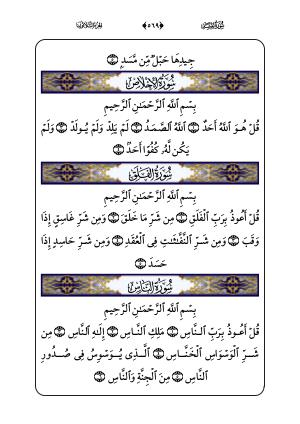 سورة الإخلاص ﴿٥٦٩﴾ الجزء الثلاثون
جِيدِهَا حَبْلٌ مِّن مَّسَدٍۭ ۝٥
سُورَةُ الإِخْلَاصِ
بِسْمِ ٱللَّهِ ٱلرَّحْمَـٰنِ ٱلرَّحِيمِ
قُلْ هُوَ ٱللَّهُ أَحَدٌ ۝١ ٱللَّهُ ٱلصَّمَدُ ۝٢ لَمْ يَلِدْ وَلَمْ يُولَدْ ۝٣ وَلَمْ
يَكُن لَّهُۥ كُفُوًا أَحَدٌۢ ۝٤
سُورَةُ الفَلَقِ
بِسْمِ ٱللَّهِ ٱلرَّحْمَـٰنِ ٱلرَّحِيمِ
قُلْ أَعُوذُ بِرَبِّ ٱلْفَلَقِ ۝١ مِن شَرِّ مَا خَلَقَ ۝٢ وَمِن شَرِّ غَاسِقٍ إِذَا
وَقَبَ ۝٣ وَمِن شَرِّ ٱلنَّفَّـٰثَـٰتِ فِى ٱلْعُقَدِ ۝٤ وَمِن شَرِّ حَاسِدٍ إِذَا
حَسَدَ ۝٥
سُورَةُ النَّاسِ
بِسْمِ ٱللَّهِ ٱلرَّحْمَـٰنِ ٱلرَّحِيمِ
قُلْ أَعُوذُ بِرَبِّ ٱلنَّاسِ ۝١ مَلِكِ ٱلنَّاسِ ۝٢ إِلَـٰهِ ٱلنَّاسِ ۝٣ مِن
شَرِّ ٱلْوَسْوَاسِ ٱلْخَنَّاسِ ۝٤ ٱلَّذِى يُوَسْوِسُ فِى صُدُورِ
ٱلنَّاسِ ۝٥ مِنَ ٱلْجِنَّةِ وَٱلنَّاسِ ۝٦